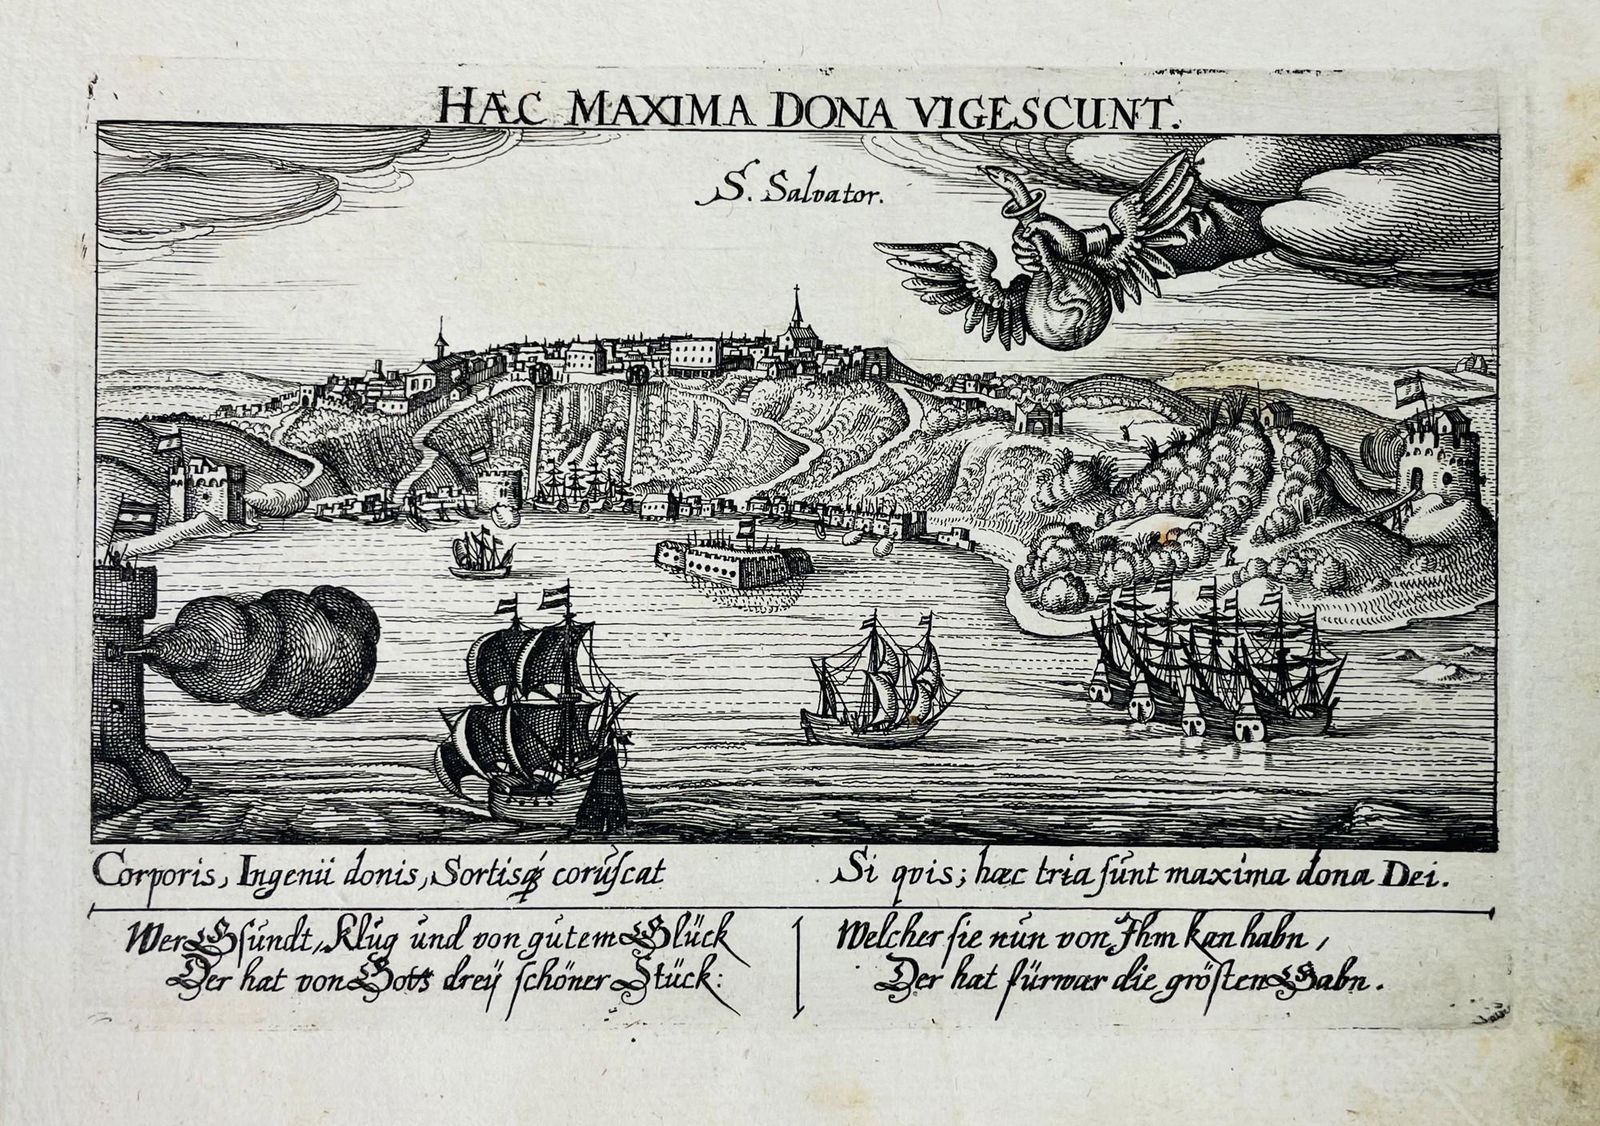 HÆC MAXIMA DONA VIGESCUNT.
S. Salvator.
Corporis, Ingenii donis, Sortisq́ꝫ coruſcat
Si qvis; hæc tria ſunt maxima dona Dei.
Wer Gſundt, Klug und von gutem Glück
Der hat von Gott's dreÿ ſchöner Stück:
Welcher ſie nun von Ihm kan habn,
Der hat fürwar die gröſten Gabn.